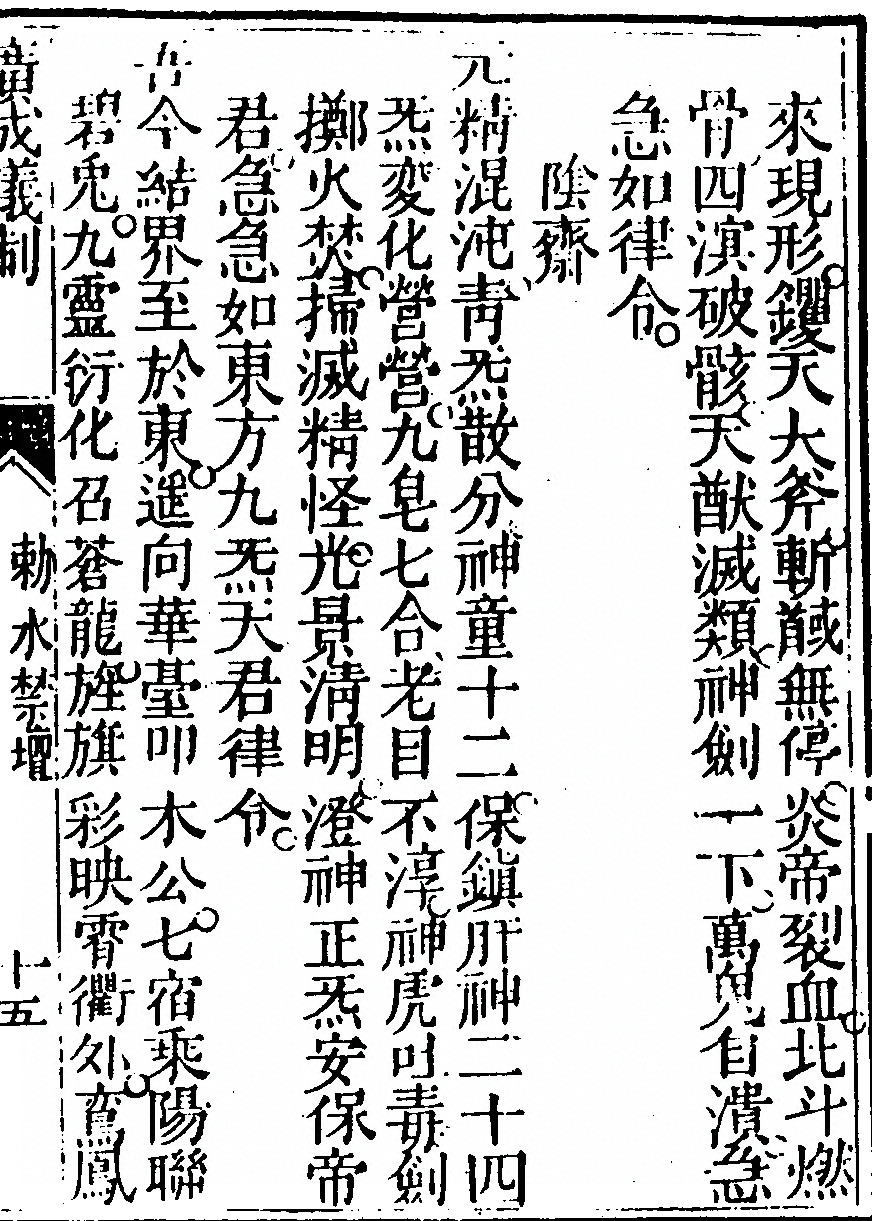 來現形鑊天大斧斬馘無停炎帝裂血北斗燃
骨四滇破骸天猷滅類神劍一下萬鬼自潰急
急如律令
陰齋
元精混沌青炁散分神童十二保鎮肝神二十四
炁変化營營九皂七合老目不淳神虎吐毒劍
擲火焚掃滅精怪光景清明澄神正炁安保帝
君急急如東方九炁天君律令
吾今結界至於東遥向華臺叩木公七宿乘陽聯
碧兎九靈衍化召蒼龍旌旗彩映霄衢外鸞鳳
廣成儀制
勅水禁壇
十五